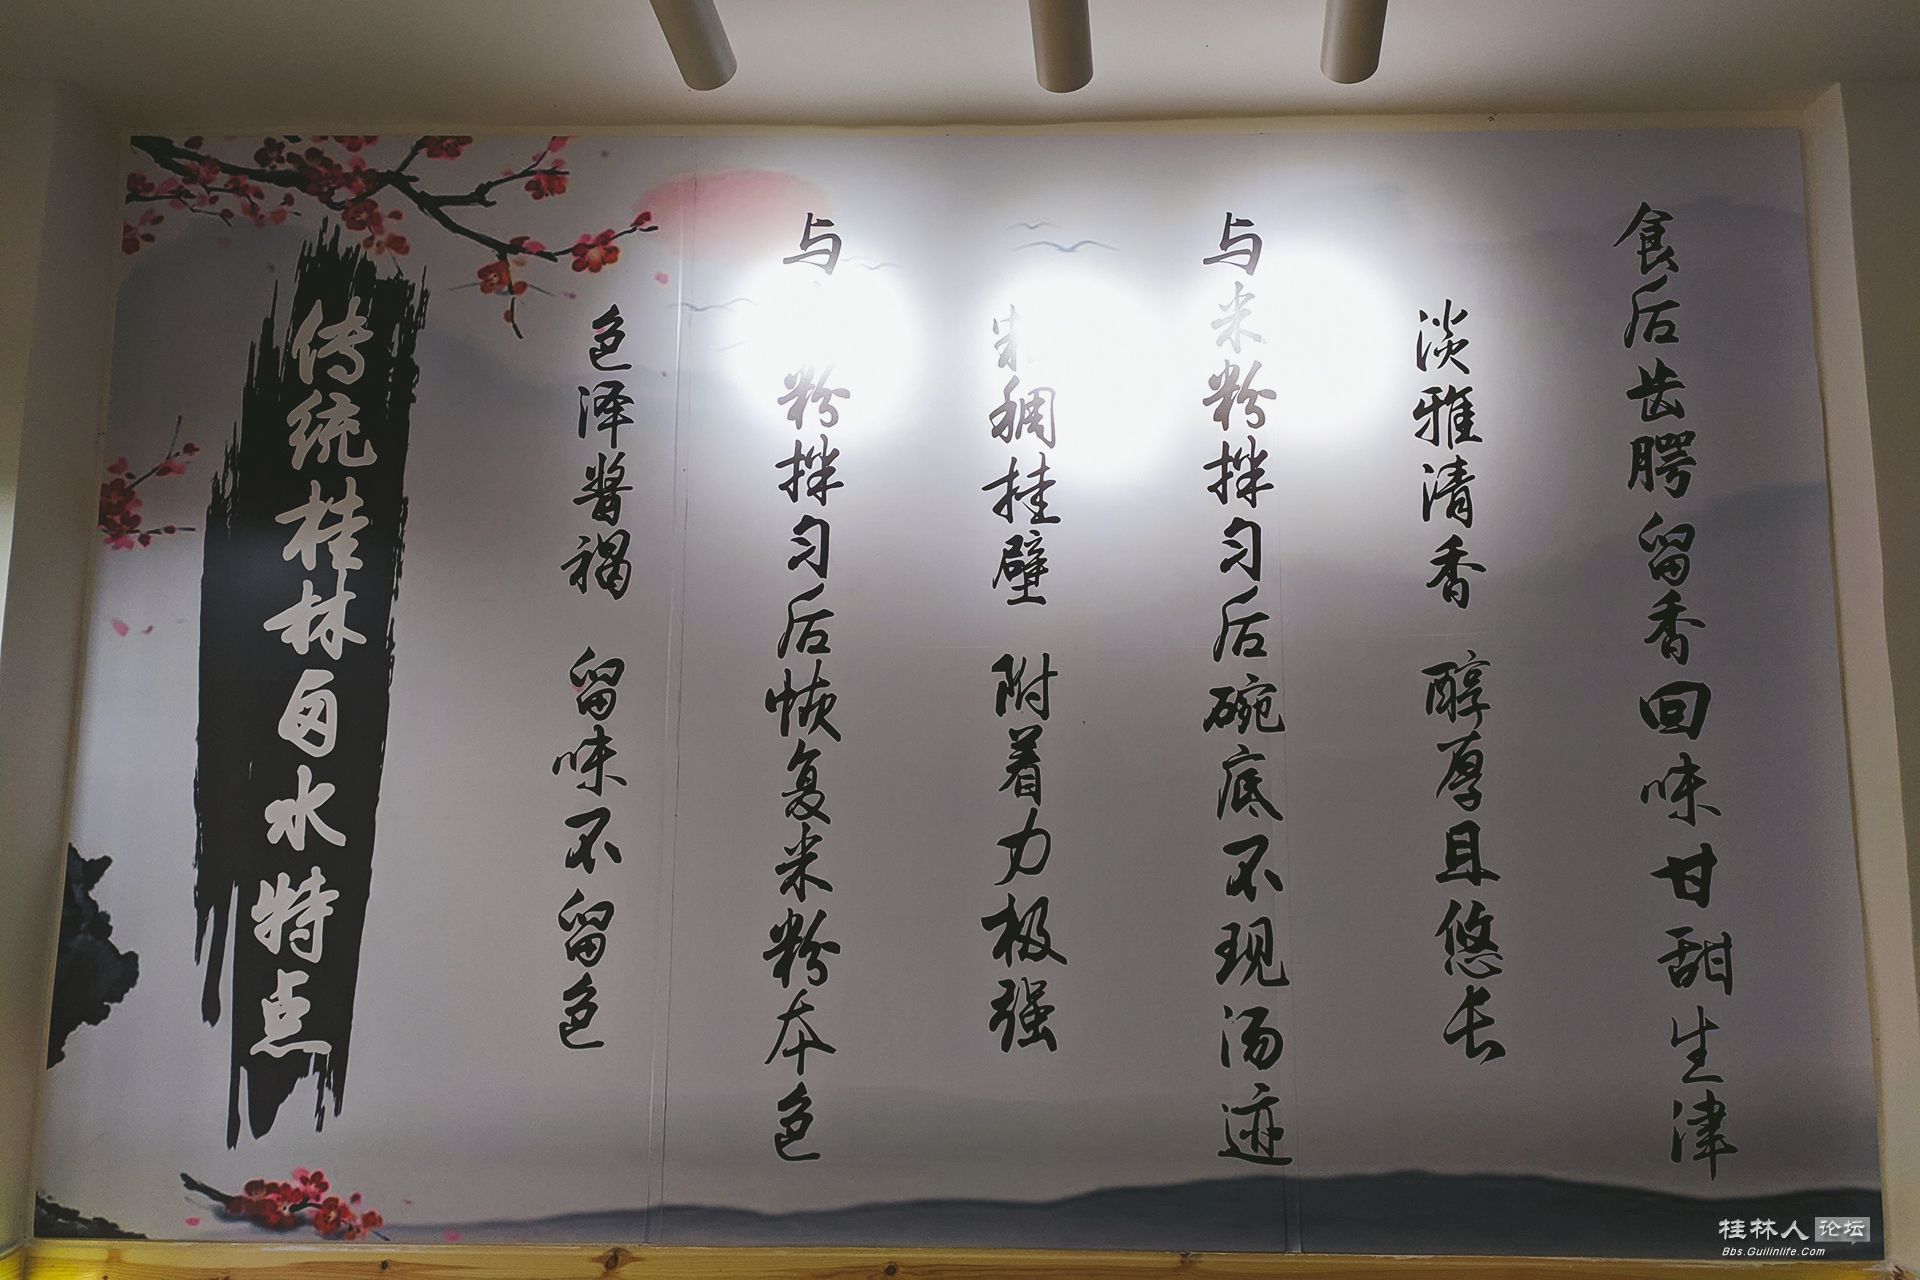 传统桂林卤水特点
色泽酱褐 留味不留色
与粉拌匀后恢复米粉本色
稠挂壁 附着力极强
与米粉拌匀后碗底不现汤迹
淡雅清香 醇厚且悠长
食后齿腭留香回味甘甜生津
桂林人论坛
Bbs.Guilinlife.Com